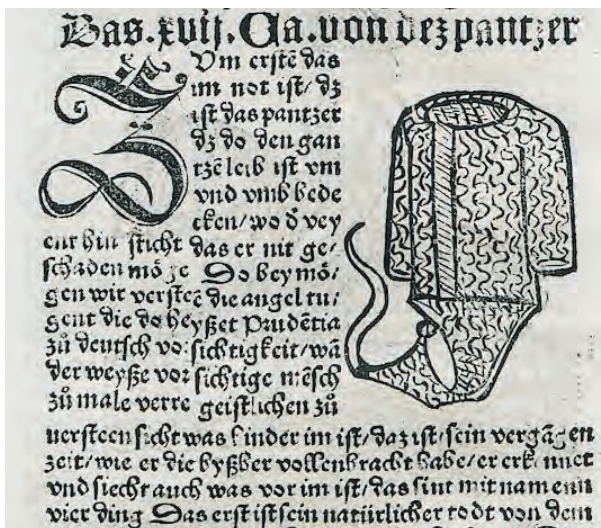 Das .xvij. Ca. von dez pantzer
ZVm erstē das
im not ist/ dz
ist das pantzer
dz do den gan
tzē leib ist vm
vnd vmb bede
cken/ wo d̕ vey
ent hin sticht das er nit ge⸗
schaden mög e So bey mö⸗
gen wir versteē die angel tu⸗
gent die do heyßet Prudētia
zů deutsch vorsichtigkeit/ wā
der weyße vorsichtige mēsch
zů male verre geistlichen zů
versteen sicht was hinder im ist/ daz ist/ sein vergāgen
zeit/ wie er die byßher vollenbracht habe/ er erkennet
vnd siecht auch was vor im ist/ das sint mit namenn
vier ding Das erst ist sein natürlicher todt von dem